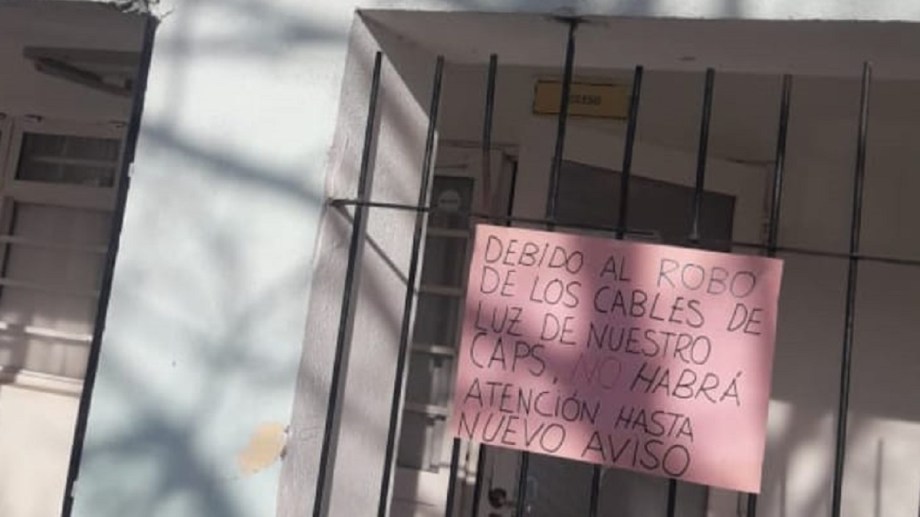 DEBIDO AL ROBO
DE LOS CABLES DE
LUZ DE NUESTRO
CAPS, NO HABRÁ
ATENCIÓN HASTA
NUEVO AVISO